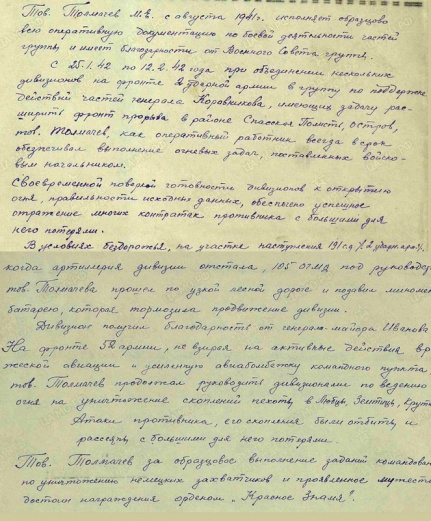 Тов. Толмачев М.В. с августа 1941г. исполнял образцово
всю оперативную документацию по боевой деятельности частей
группы и имеет благодарности от Военного Совета группы.
С 25.1.42 по 12.2.42 года при объединении нескольких
дивизионов на фронте 2 ударной армии в группу по поддержке
действий частей генерала Коровникова, имеющих задачу рас-
ширить фронт прорыва в районе Спасская Полисть, Остров,
тов. Толмачев, как оперативный работник всегда в срок
обеспечивал выполнение огневых задач, поставленных войско-
вым начальником.
Своевременной поверкой готовности дивизионов к открытию
огня, правильности исходных данных, обеспечено успешное
отражение многих контратак противника с большими для
него потерями.
В условиях бездорожья, на участке наступления 191 сд (2 удар. арм),
когда артилерия дивизии отстала, 105 ОГМД под руководс
тов. Толмачева прошел по узкой лесной дороге и подавил миноме
батарею, которая тормозила продвижение дивизии.
Дивизион получил благодарность от генерал-майора Иванова
На фронте 52 армии, не взирая на активные действия вра
жеской авиации и усиленную авиабомбежку командного пункта
тов. Толмачев продолжал руководить дивизионами по ведению
огня на уничтожение скоплений пехоты, в Любцы, Земтицы, Крути
Атаки противника, его скопления были отбиты и
рассеяны с большими для него потерями.
Тов. Толмачев за образцовое выполнение заданий командован
по уничтожению немецких захватчиков и проявленное мужеств
достоин награждения орденом „Красное Знамя".